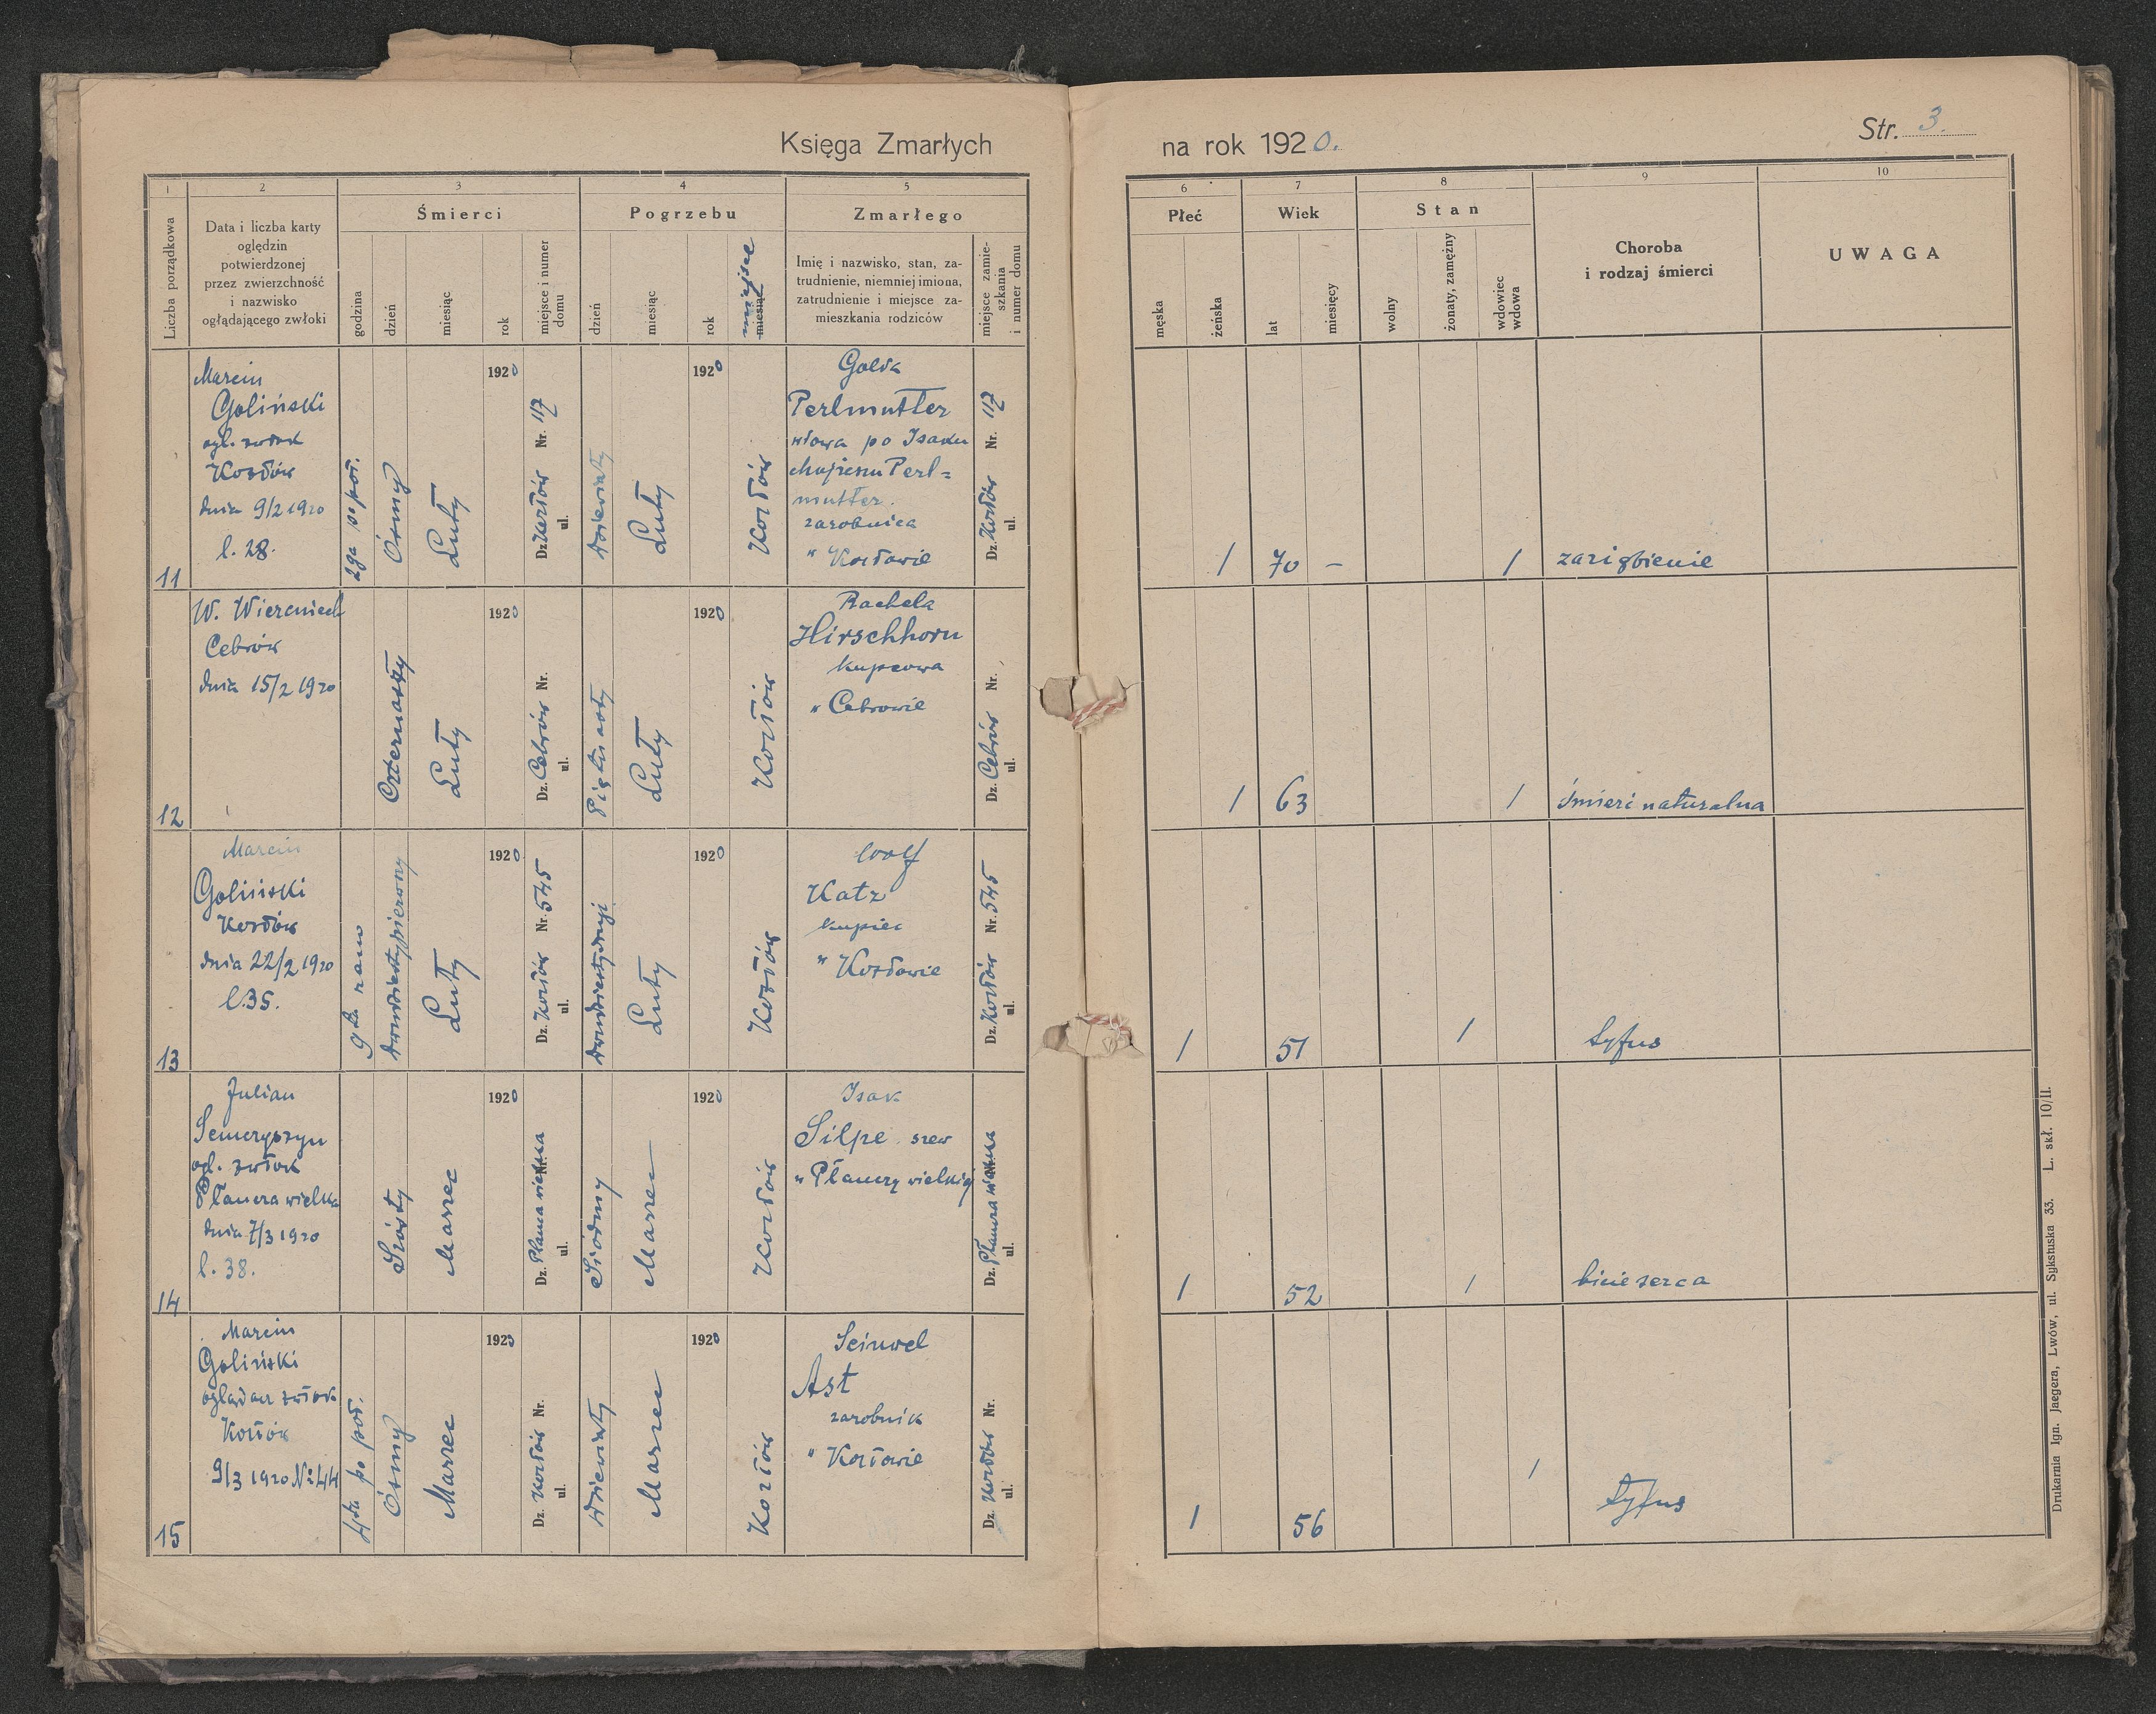 Księga Zmarłych
na rok 1920.
Str. 3.
1
2
3
4
5
6
7
8
9
10
Liczba porządkowa
Data i liczba karty
oględzin
potwierdzonej
przez zwierzchność
i nazwisko
oglądającego zwłoki
Śmierci
godzina
dzień
miesiąc
rok
miejsce i numer
domu
Pogrzebu
dzień
miesiąc
rok
miesiąc
miejsce
Zmarłego
Imię i nazwisko, stan, za-
trudnienie, niemniej imiona,
zatrudnienie i miejsce za-
mieszkania rodziców
miejsce zamie-
szkania
i numer domu
Płeć
męska
żeńska
Wiek
lat
miesięcy
Stan
wolny
żonaty, zamężny
wdowiec
wdowa
Choroba
i rodzaj śmierci
UWAGA
11
Marcin
Goliński
ogl. zwłok
Kozłów
dnia 9/2 1920
l. 28.
2ga po poł.
Ósmy
Luty
1920
Dz. Kozłów Nr. 117
ul.
Dziewiąty
Luty
1920
Kozłów
Golda
Perlmutter
wdowa po Isaku
Perl=
mutter.
zarobnica
w Kozłowie
Dz. Kozłów Nr. 117
ul.
1
70
-
1
zaziębienie
12
W. Wierciuch
Cebrów
dnia 15/2 1920
Czternasty
Luty
1920
Dz. Cebrów Nr.
ul.
Piętnasty
Luty
1920
Kozłów
Rachela
Hirschhorn
kupcowa
w Cebrowie
Dz. Cebrów Nr.
ul.
1
63
1
śmierć naturalna
13
Marcin
Goliński
Kozłów
dnia 22/2 1920
l. 35.
9ta rano
dwudziestypierwszy
Luty
1920
Dz. Kozłów Nr. 545
ul.
dwudziestydrugi
Luty
1920
Kozłów
Wolf
Katz
kupiec
w Kozłowie
Dz. Kozłów Nr. 545
ul.
1
51
1
tyfus
14
Julian
Semeryszyn
ogl. zwłok
Płaucza wielka
dnia 7/3 1920
l. 38.
Szósty
Marzec
1920
Dz. Płaucza wielka Nr.
ul.
Siódmy
Marzec
1920
Kozłów
Isak
Silpe szew
w Płauczy wielkiej
Dz. Płaucza wielka Nr.
ul.
1
52
1
bicie serca
15
Marcin
Goliński
oglądacz zwłok
Kozłów
9/3 1920 No 44
4ta po poł.
Ósmy
Marzec
1920
Dz. Kozłów Nr.
ul.
dziewiąty
Marzec
1920
Kozłów
Seinwel
Ast
zarobnik
w Kozłowie
Dz. Kozłów Nr.
ul.
1
56
1
tyfus
Drukarnia Ign. Jaegera, Lwów, ul. Sykstuska 33. L. skł. 10/II.